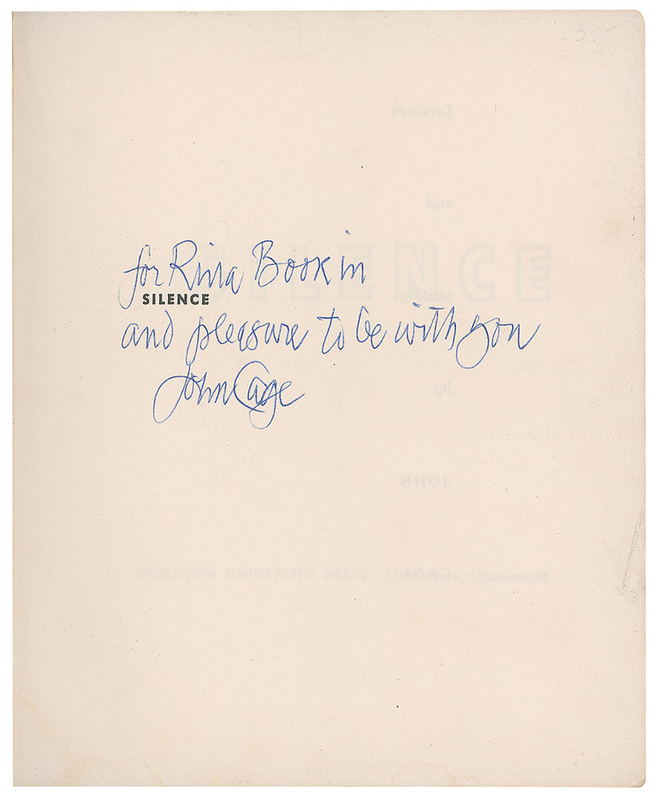 for Rina Book in
SILENCE
and pleasure to be with you
John Cage